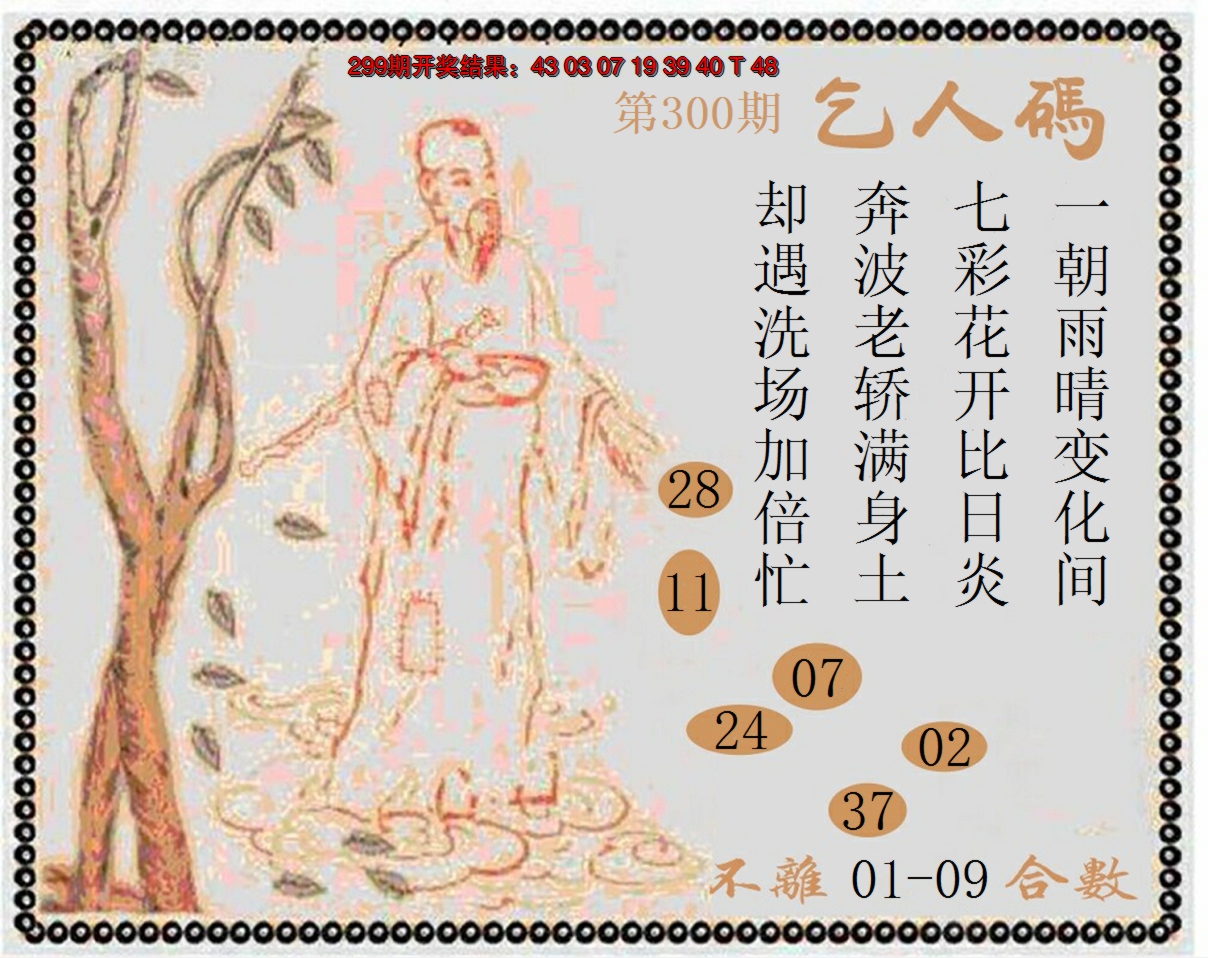 299期开奖结果：43 03 07 19 39 40 T 48
第300期 乞人碼
一朝雨晴变化间
七彩花开比日炎
奔波老轿满身土
却遇洗场加倍忙
28
11
07
24
02
37
不離 01-09 合數